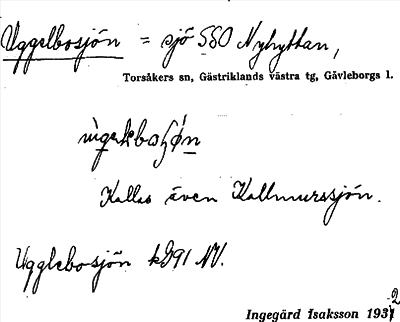 Uggelbosjön = sjö SSO Nyhyttan,
Torsåkers sn, Gästriklands västra tg, Gävleborgs l.
Kallas även Kallmurssjön.
Ugglebosjön kG91 NV.
Ingegärd Isaksson 1932